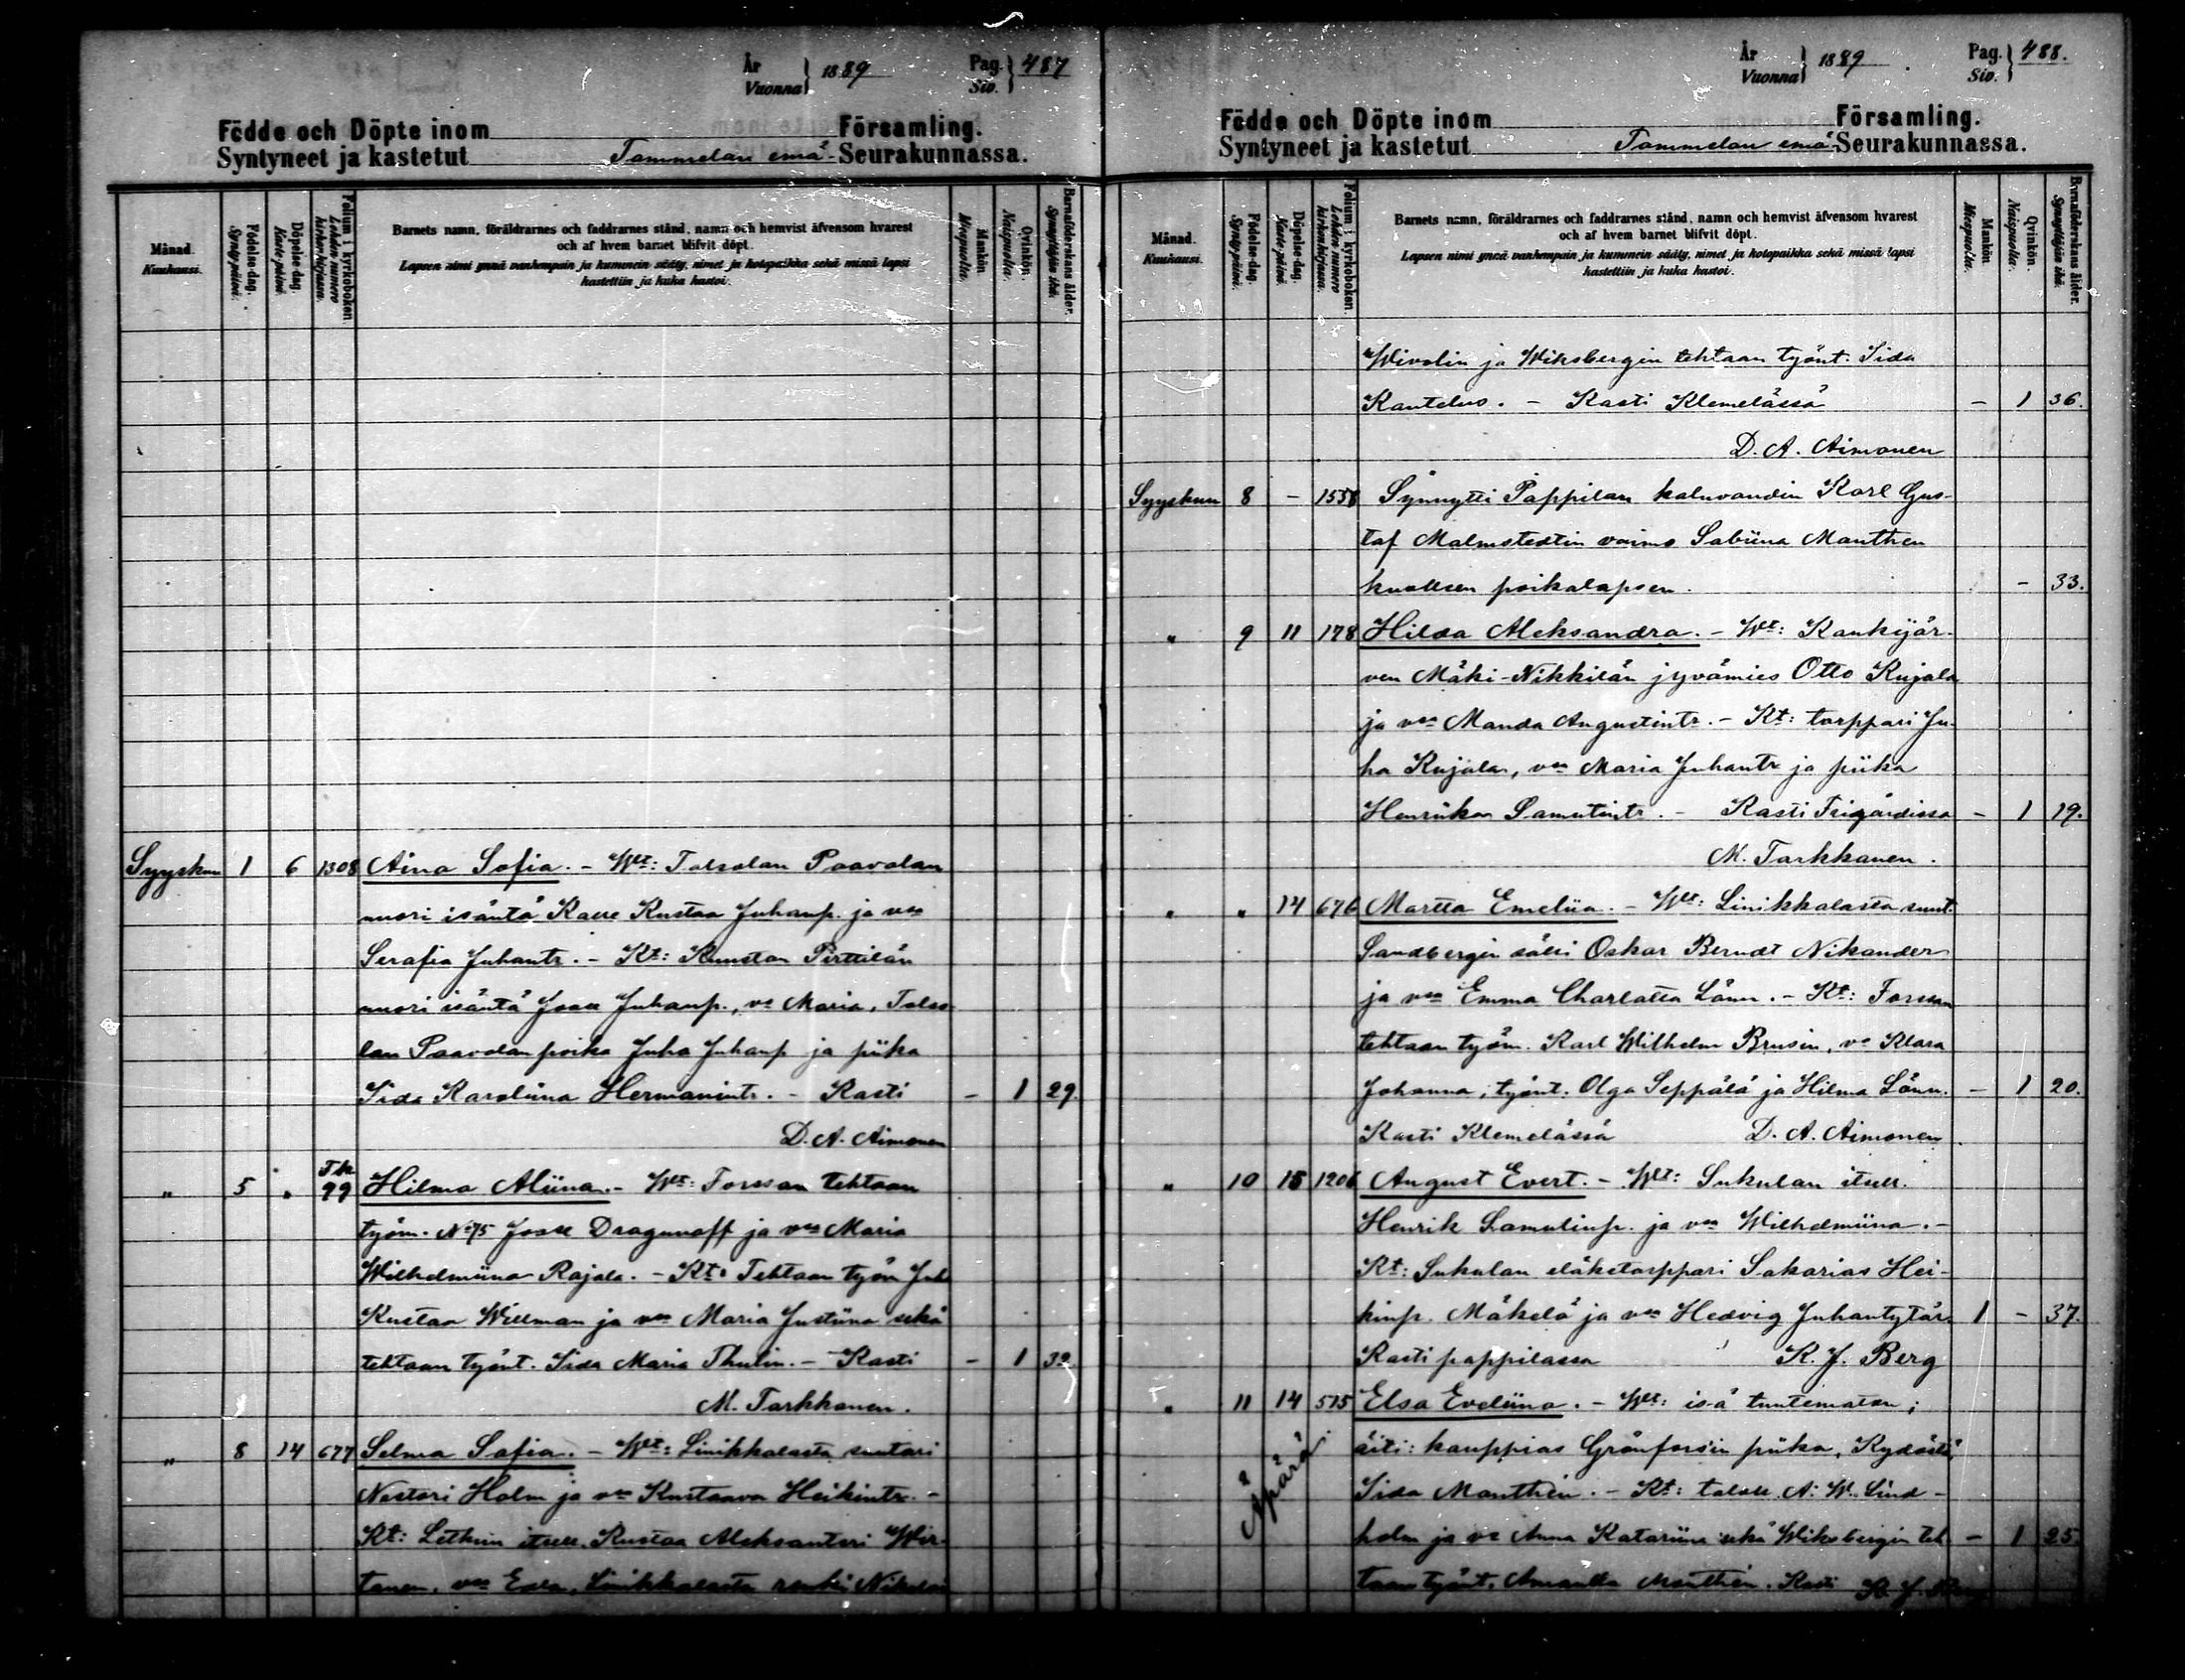 År
Vuonna } 1889
Pag.
Siv. } 487
Födde och Döpte inom Församling.
Syntyneet ja kastetut Tammelan emä- Seurakunnassa.
Månad.
Kuukausi.
Födelse-dag.
Synty-päivä.
Döpelse-dag.
Kaste-päivä.
Folium i kyrkoboken.
Lehden numero kirkonkirjassa.
Barnets namn, föräldrarnes och faddrarnes stånd, namn och hemvist äfvensom hvarest
och af hvem barnet blifvit döpt.
Lapsen nimi ynnä vanhempain ja kummein sääty, nimet ja kotopaikka sekä missä lapsi
kastettiin ja kuka kastoi.
Mankön.
Miespuolta.
Qvinkön.
Naispuolta.
Barnaföderskans ålder.
Synnyttäjän ikä.
Syyskuu 1 6 1308 Aina Sofia. - Wt: Talsolan Paavolan
nuori isäntä Kalle Kustaa Juhanp. ja vaa
Serafia Juhantr. - Kt: Kuuston Pirttilän
nuori isäntä Josse Juhanp., va Maria, Talso-
lan Paavolan poika Juha Juhanp. ja piika
Iida Karoliina Hermanintr. - Kasti - 1 29.
D. A. Aimonen
" 5 " Tk 99 Hilma Aliina. - Wt: Forssan tehtaan
työm. No 75 Josse Dragunoff ja vaa Maria
Wilhelmiina Rajala. - Kt: Tehtaan työm Juh
Kustaa Willman ja vaa Maria Justiina sekä
tehtaan työnt. Iida Maria Thulin. - Kasti - 1 39
M. Tarkkanen.
" 8 14 677 Selma Sofia. - Wt: Linikkalasta suutari
Nestori Holm ja vaa Kustaava Heikintr. -
Kt: Letkun itsell. Kustaa Aleksanteri Wir-
tanen, vaa Eva, Linikkalasta renki Nikolai
År
Vuonna } 1889
Pag.
Siv. } 488.
Födde och Döpte inom Församling.
Syntyneet ja kastetut Tammelan emä- Seurakunnassa.
Månad.
Kuukausi.
Födelse-dag.
Synty-päivä.
Döpelse-dag.
Kaste-päivä.
Folium i kyrkoboken.
Lehden numero kirkonkirjassa.
Barnets namn, föräldrarnes och faddrarnes stånd, namn och hemvist äfvensom hvarest
och af hvem barnet blifvit döpt.
Lapsen nimi ynnä vanhempain ja kummein sääty, nimet ja kotopaikka sekä missä lapsi
kastettiin ja kuka kastoi.
Mankön
Miespuolta.
Qvinkön.
Naispuolta.
Barnaföderskans ålder.
Synnyttäjän ikä.
Wivolin ja Wiksbergin tehtaan työnt. Iida
Kantelus. - Kasti Klemelässä - 1 36.
D. A. Aimonen
Syyskuu 8 - 1558 Synnytti Pappilan kaluvoudin Karl Gus-
taf Malmstedtin vaimo Sabiina Manthen
kuolleen poikalapsen. - 33.
" 9 11 178 Hilda Aleksandra. - Wt: Kaukijär-
ven Mäki-Nikkilän jyvämies Otto Kujala
ja vaa Manda Augustintr. - Kt: torppari Ju-
ha Kujala, vaa Maria Juhantr ja piika
Henriika Samulintr. - Kasti Frigårdissa - 1 19.
M. Tarkkanen.
" " 14 676 Martta Emeliia. - Wt: Linikkalasta suut.
Sandbergin sälli Oskar Berndt Nikander
ja vaa Emma Charlotta Lönn. - Kt: Forssan
tehtaan työm. Karl Wilhelm Brusin, va Klara
Johanna, työnt. Olga Seppälä ja Hilma Lönn. - 1 20.
Kasti Klemelässä D. A. Aimonen
" 10 15 1206 August Evert. - Wt: Sukulan itsell.
Henrik Samulinp. ja vaa Wilhelmiina. -
Kt: Sukulan eläketorppari Sakarias Hei-
kinp. Mäkelä ja vaa Hedvig Juhantytär. 1 - 37.
Kasti pappilassa K. J. Berg
" 11 14 515 Elsa Eveliina. - Wt: isä tuntematon;
Äpärä
äiti: kauppias Grönforsin piika, Kydöstä,
Iida Manthén. - Kt: talell. A. W. Lind-
holm ja va Anna Katariina sekä Wiksbergin teh- - 1 25.
taan työnt. Amanda Manthén. Kasti K. J. Berg